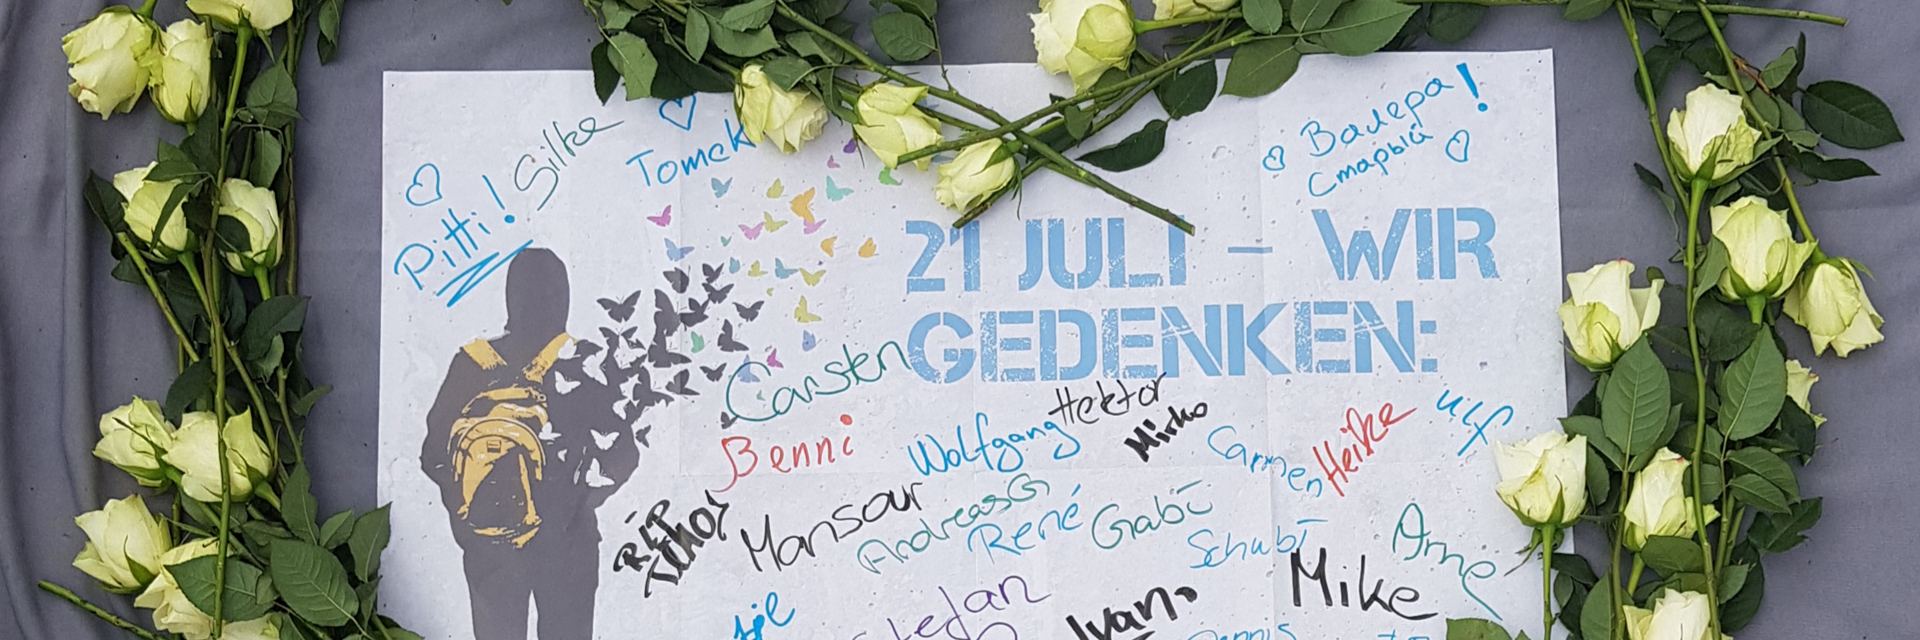 Silke
Tomek
Pitti!
Валера!
Старый
21 JULI – WIR
GEDENKEN:
Carsten
Hektor
Benni
Wolfgang
Mirko
Carmen
Heike
Ulf
RIP
Mansour
Andreas G
René
Gabi
Schubi
Arne
Mike
Stefan
Ivan
Dennis